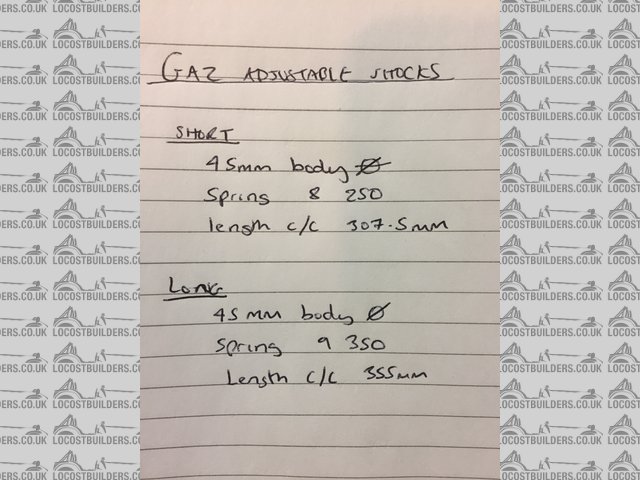 GAZ ADJUSTABLE SHOCKS
SHORT
45mm body Ø
Spring 8 250
length c/c 307.5mm
LONG
45mm body Ø
Spring 9 350
Length c/c 355mm
LOCOSTBUILDERS.CO.UK